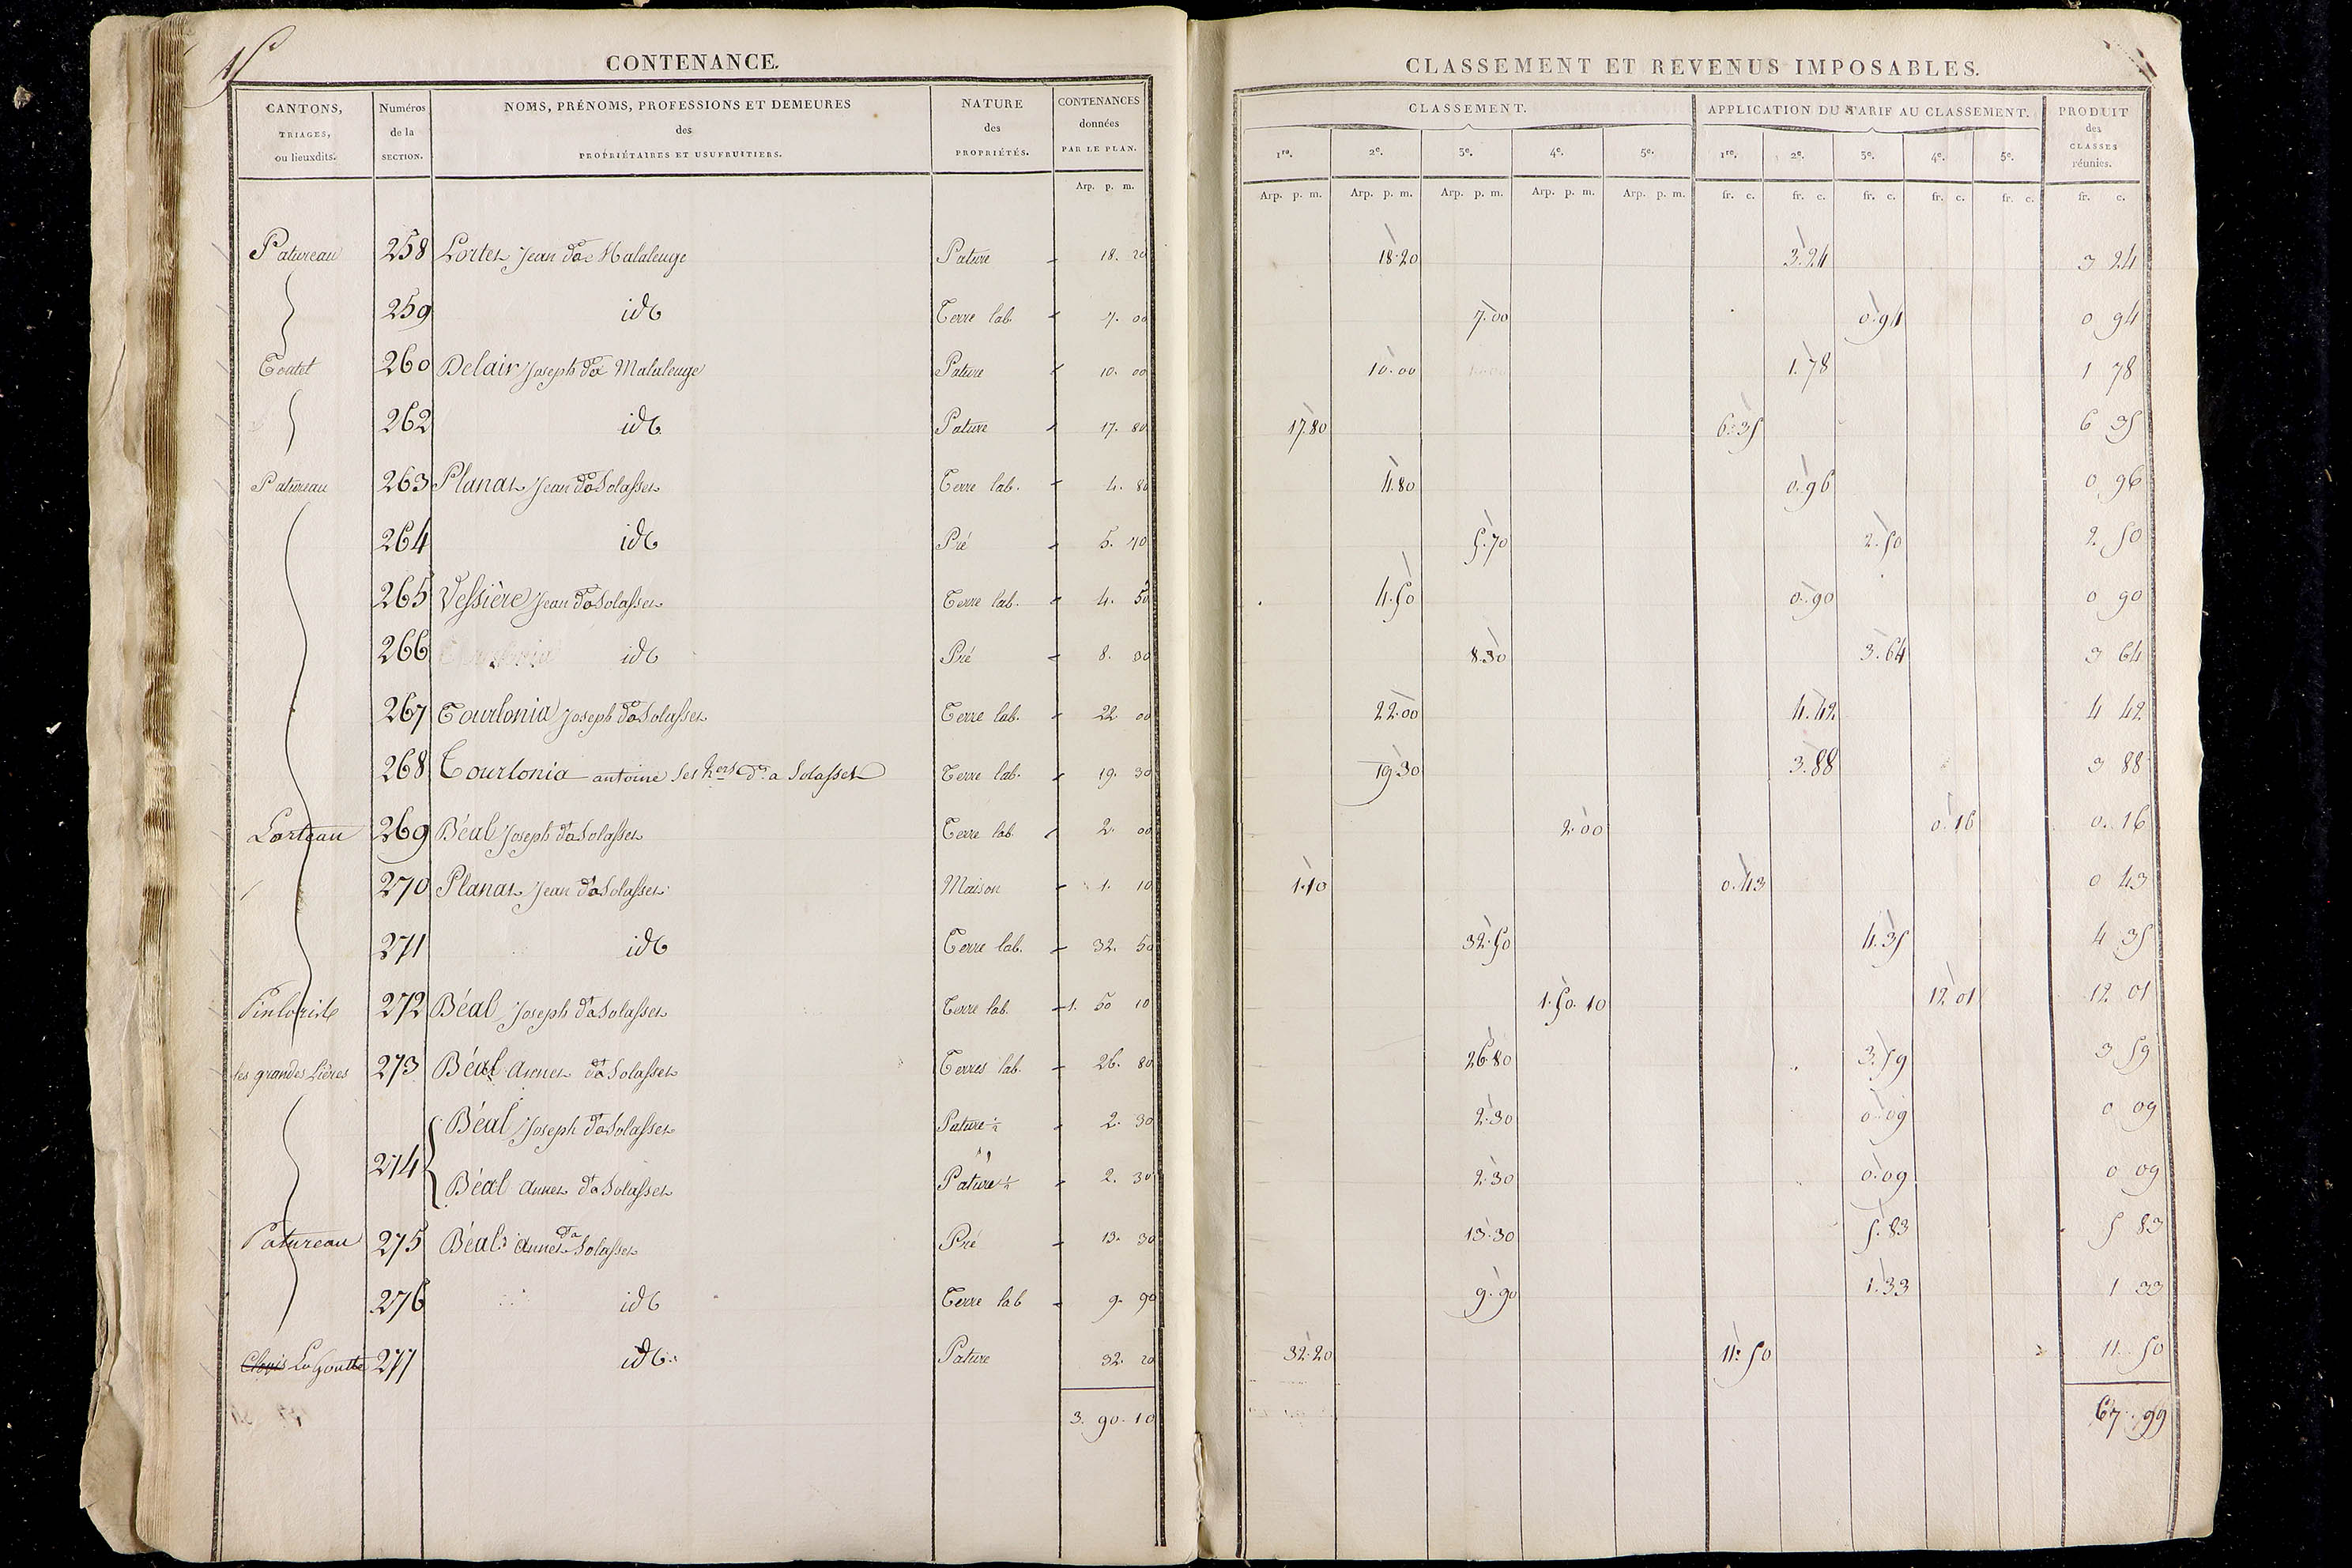 CONTENANCE.
CANTONS, TRIAGES, ou lieuxdits.
Numéros de la SECTION.
NOMS, PRÉNOMS, PROFESSIONS ET DEMEURES des PROPRIÉTAIRES ET USUFRUITIERS.
NATURE des PROPRIÉTÉS.
CONTENANCES données PAR LE PLAN.
Arp. p. m.
CLASSEMENT ET REVENUS IMPOSABLES.
CLASSEMENT.
APPLICATION DU TARIF AU CLASSEMENT.
PRODUIT des CLASSES réunies.
1re. 2e. 3e. 4e. 5e. 1re. 2e. 3e. 4e. 5e.
Arp. p. m. Arp. p. m. Arp. p. m. Arp. p. m. Arp. p. m. fr. c. fr. c. fr. c. fr. c. fr. c. fr. c.
Patureau 258 Jean da Malaleuge Pature 18. 20 18.20 3.24 3 24
259 id Terre lab. 7. 00 7.00 0.94 0 94
260 Delair Joseph da Malaleuge Pature 10. 00 10.00 1.78 1 78
262 id Pature 17. 80 17.80 6.35 6 35
Patureau 263 Planat Jean da Solasses Terre lab. 4. 80 4.80 0.96 0 96
264 id Pré 5. 70 5.70 2.50 2 50
265 Vessière Jean da Solasses Terre lab. 4. 50 4.50 0.90 0 90
266 id Pré 8. 30 8.30 3.64 3 64
267 Tourlonia Joseph da Solasses Terre lab. 22 00 22.00 4.42 4 42
268 Tourlonia antoine ses hers da Solasses Terre lab. 19. 30 19.30 3.88 3 88
Larteau 269 Béal Joseph da Solasses Terre lab 2. 00 2.00 0.16 0. 16
270 Planat Jean da Solasses Maison 1. 10 1.10 0.43 0 43
271 id Terre lab. 32. 50 32.50 4.35 4 35
272 Béal Joseph da Solasses Terre lab. 1. 50 10 1.50.10 12.01 12 01
les grandes 273 Béal Annet da Solasses Terres lab. 26. 80 26.80 3.59 3 59
274 Béal Joseph da Solasses Pature ½ 2. 30 2.30 0.09 0 09
Béal Annet da Solasses Pature ½ 2. 30 2.30 0.09 0 09
Patureau 275 Béal Annet da Solasses Pré 13. 30 13.30 5.83 5 83
276 id Terre lab 9. 90 9.90 1.33 1 33
La Goutte 277 id Pature 32. 20 32.20 11.50 11. 50
3. 90. 10 67. 99